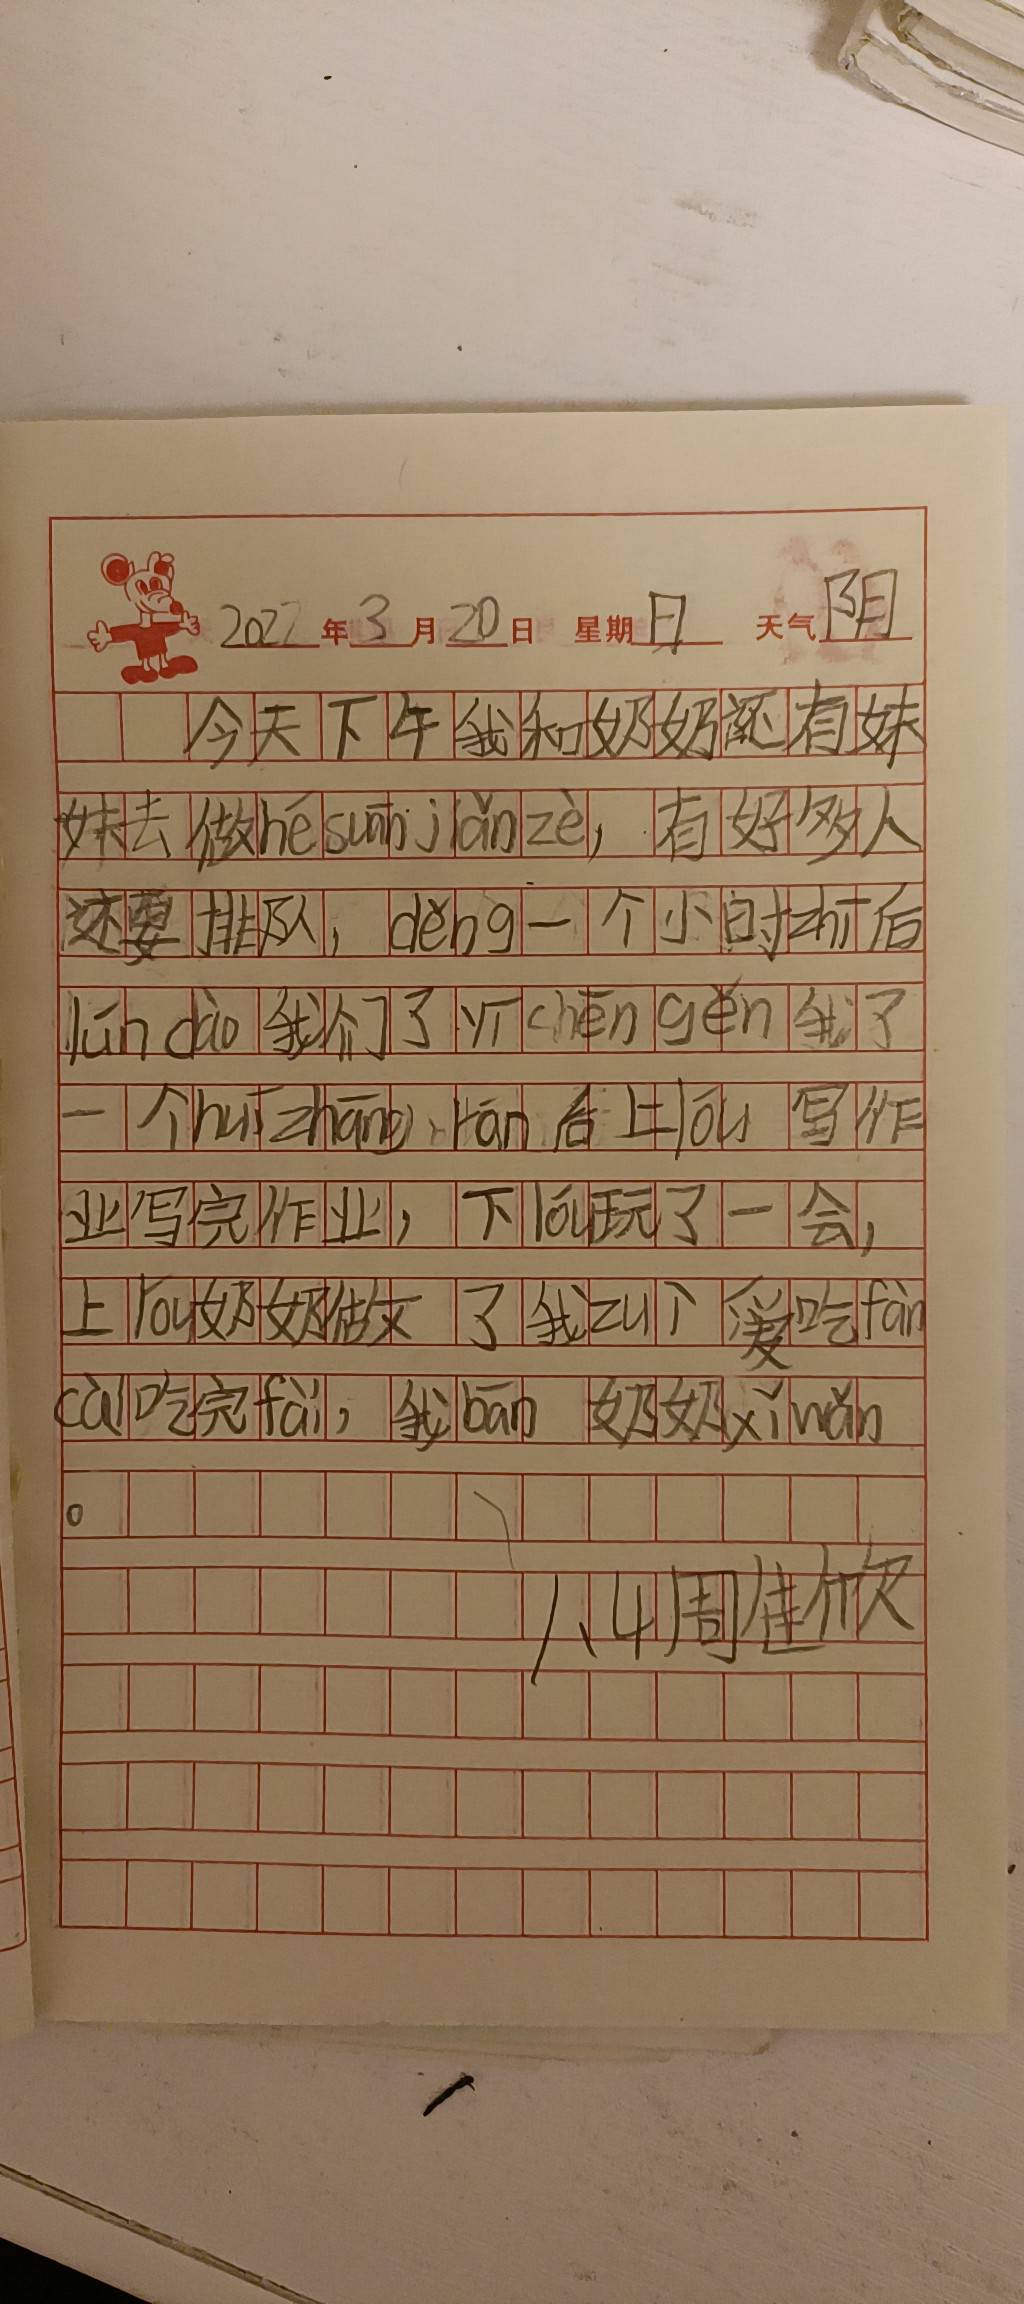 2022年3月20日 星期日 天气阴
今天下午我和奶奶还有妹
妹去做hé suān jiǎn zè，有好多人
还要排队，děng一个小时zhī后
lún dào我们了 yī chēn gěn我了
一个huī zhāng，rán后上lóu写作
业写完作业，下lóu玩了一会，
上lóu奶奶做文了我zuì爱吃fàn
cài吃完fài，我bān奶奶xǐ wǎn
。
八4周佳欣